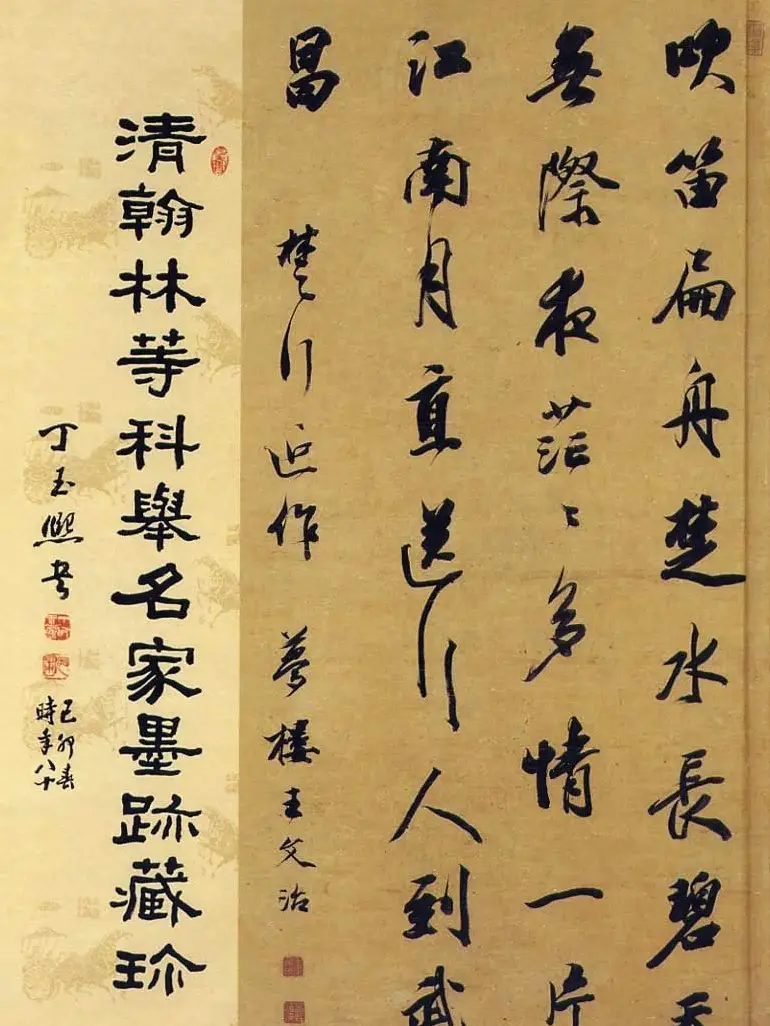 吹笛扁舟楚水長碧天
無際夜茫〻多情一片
江南月直送行人到武
昌 楚行近作 夢樓王文治
清翰林等科舉名家墨跡藏珎
丁玉熙書
己卯春
時年八十